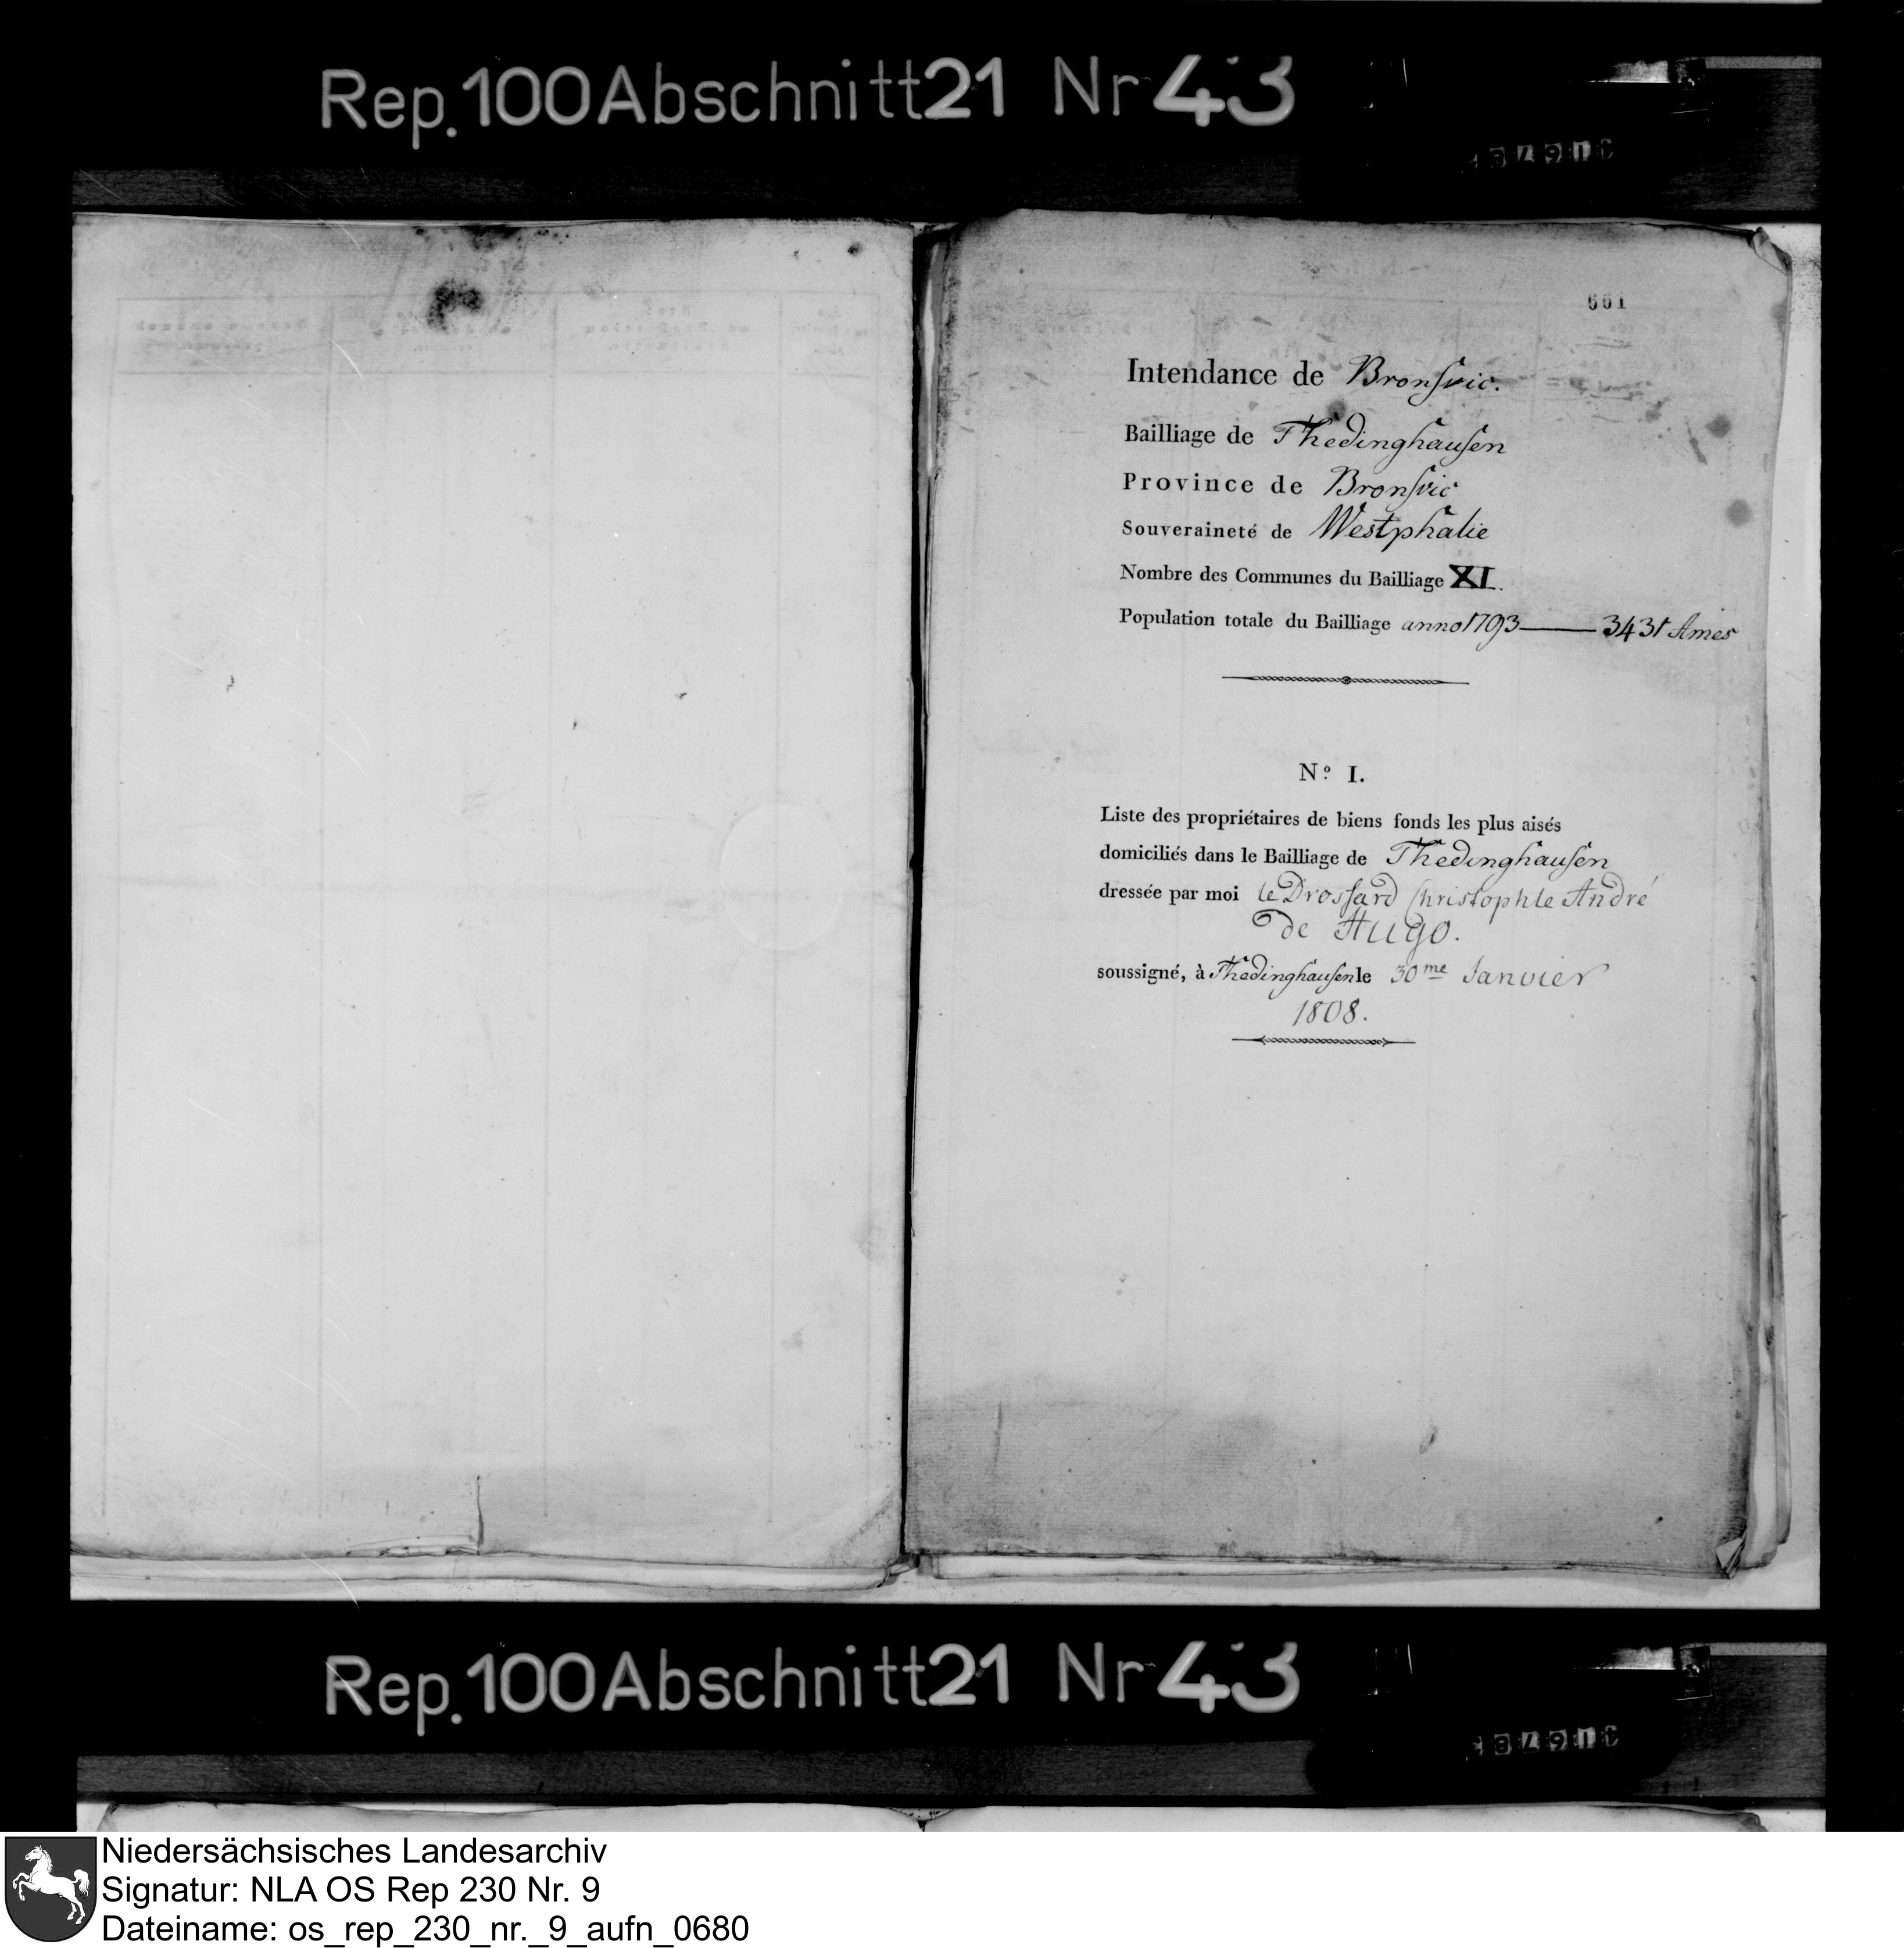 Rep. 100 Abschnitt 21 Nr 43
661
Intendance de Bronsvic.
Bailliage de Thedinghausen
Province de Bronsvic
Souveraineté de Westphalie
Nombre des Communes du Bailliage XI.
Population totale du Bailliage anno 1793 — 3431 Ames
Nº I.
Liste des propriétaires de biens fonds les plus aisés
domiciliés dans le Bailliage de Thedinghausen
dressée par moi le Drossard Christophle André
de Hugo.
soussigné, à Thedinghausen le 30me Janvier
1808.
Rep. 100 Abschnitt 21 Nr 43
Niedersächsisches Landesarchiv
Signatur: NLA OS Rep 230 Nr. 9
Dateiname: os_rep_230_nr._9_aufn_0680